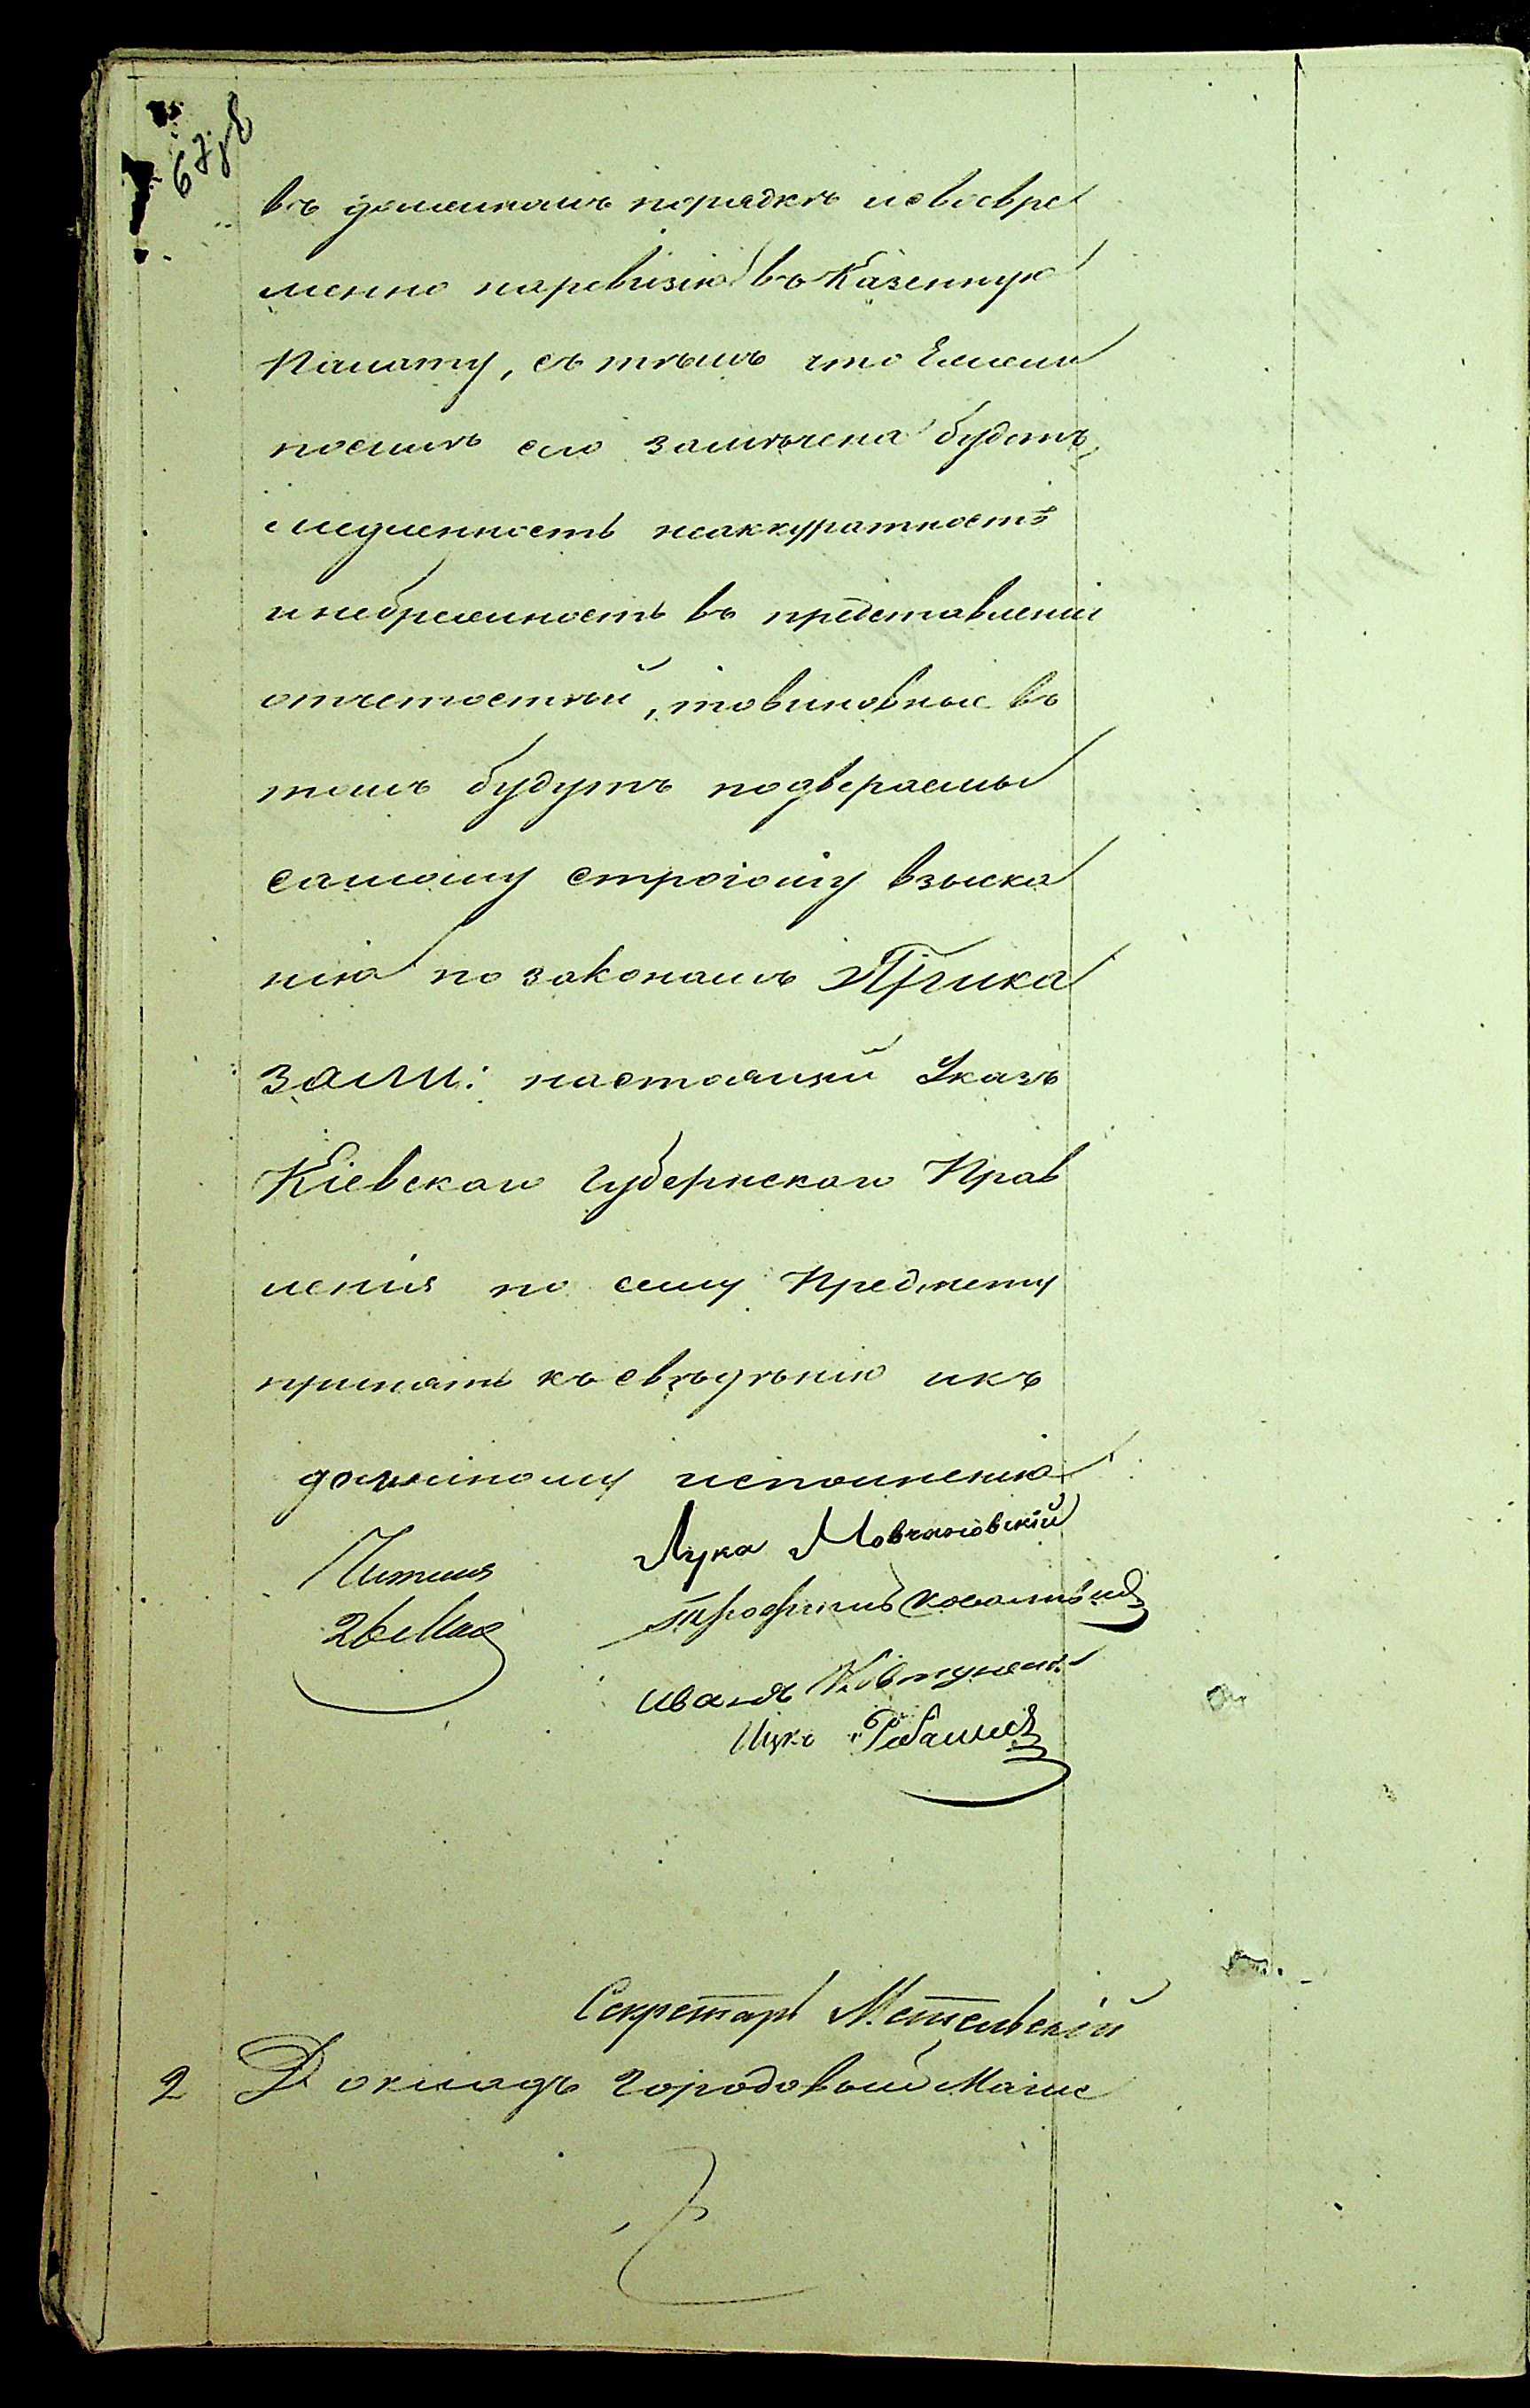 въ должномъ порядкѣ и своевре
менно наревизію въ Казенную
Палату, съ тѣмъ что Ежели
послѣ сего замѣчена будетъ
медленность неаккуратность
и небрежность въ представленіи
отчетностей, то виновные въ
томъ будутъ подвергаемы
самому строгому взыска
нію по законамъ Прика
зали: настоящій Указъ
Кіевскаго Губернскаго Прав
ленія по сему Предмету
принять къ свѣдѣнію и къ
должному исполненію
Лука Мовчановскій
Трофимъ
26 Мая
Иванъ Ковтуненко
Ицко Рабашъ
Секретарь Метельскій
2 Докладъ Городовый Маги